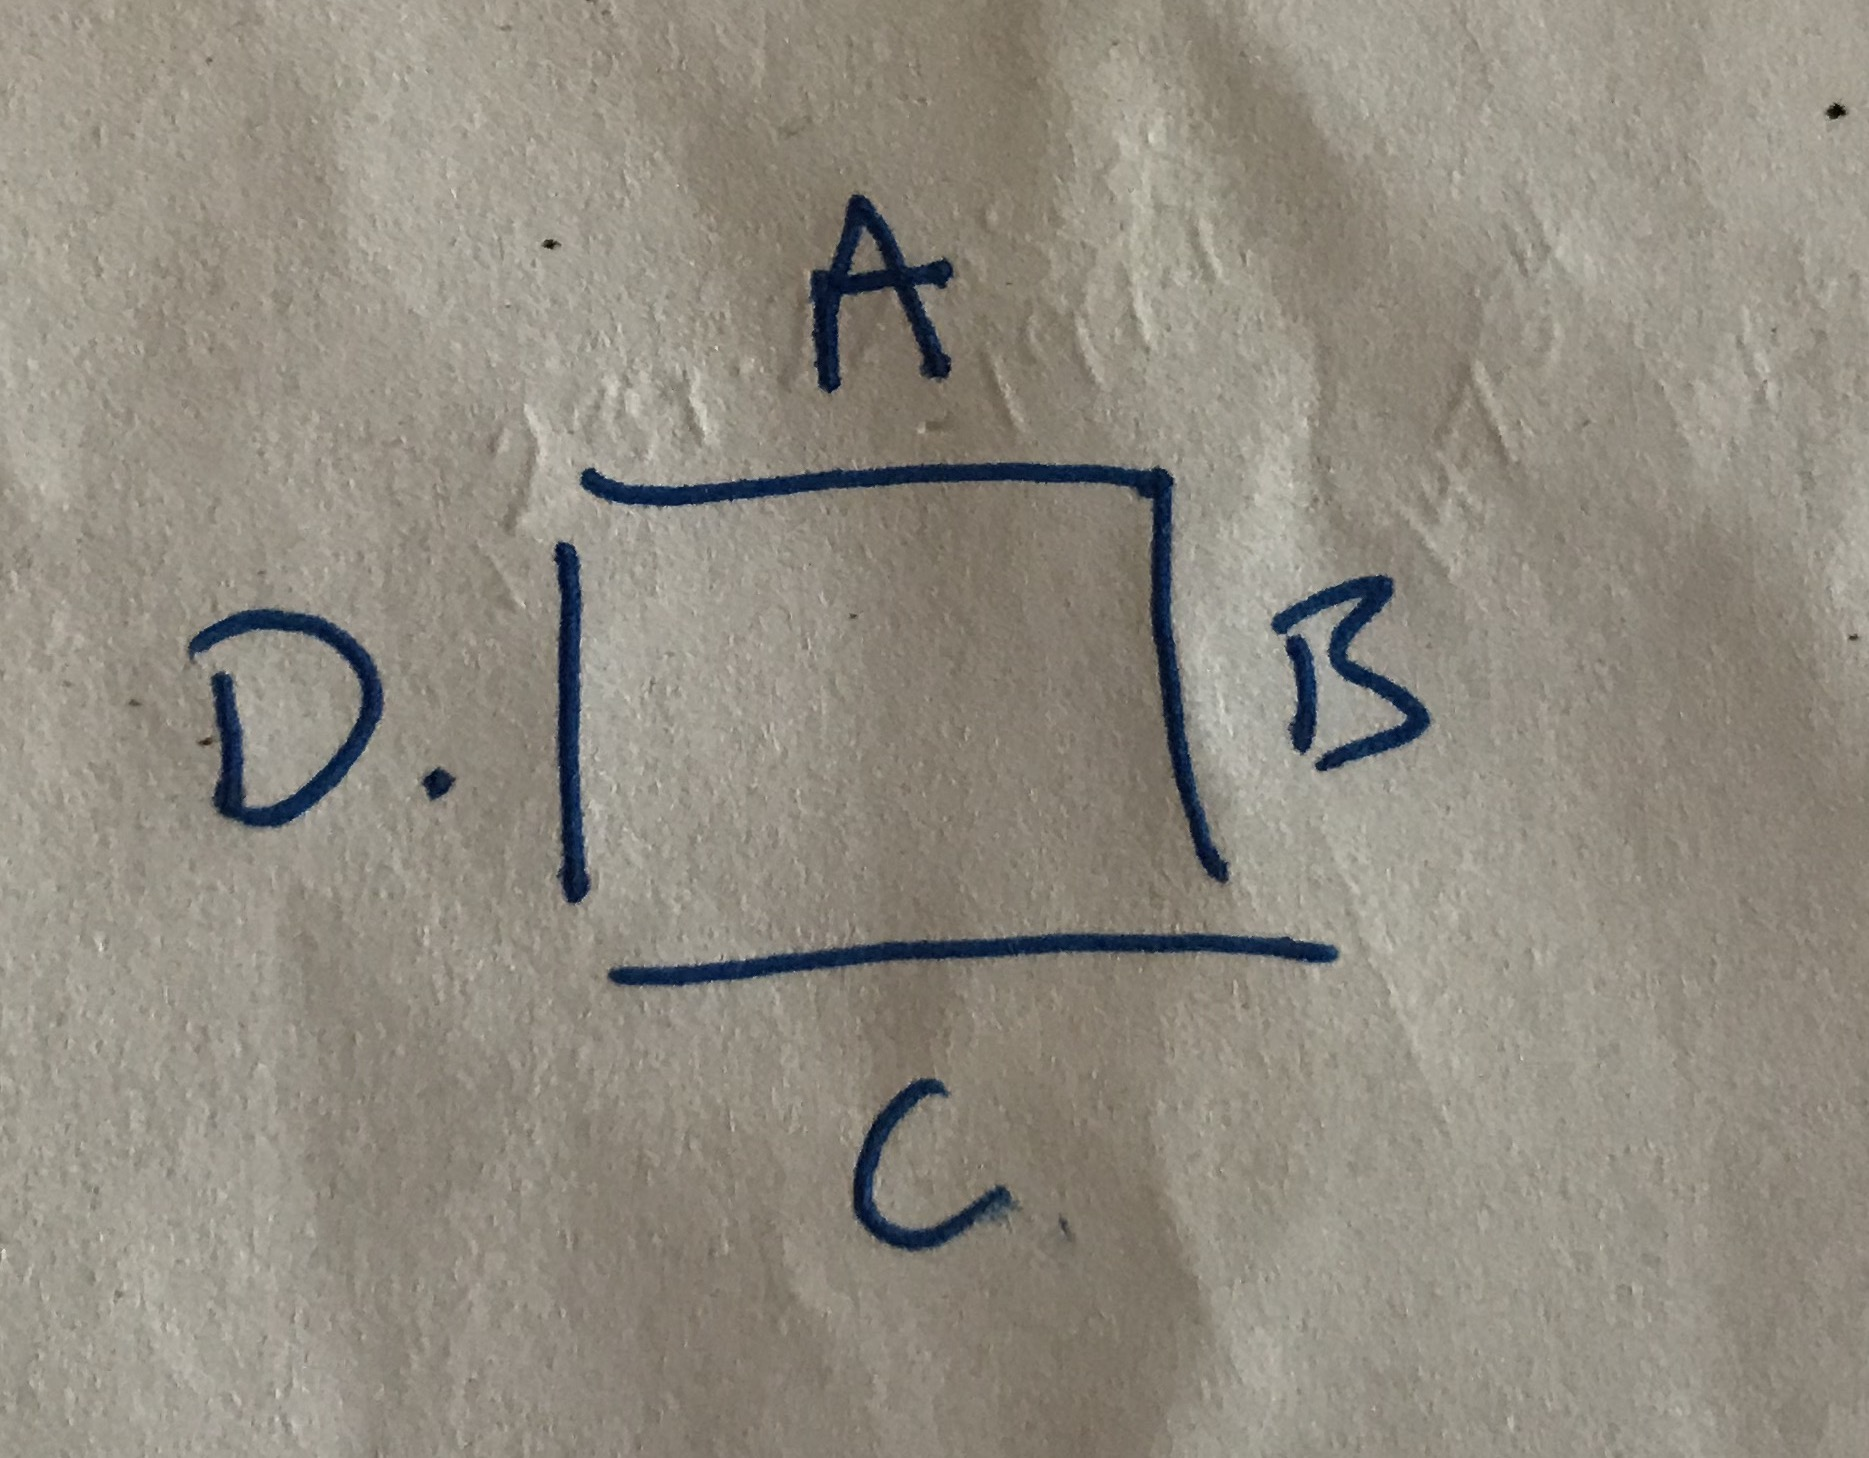 A
D. B
C.